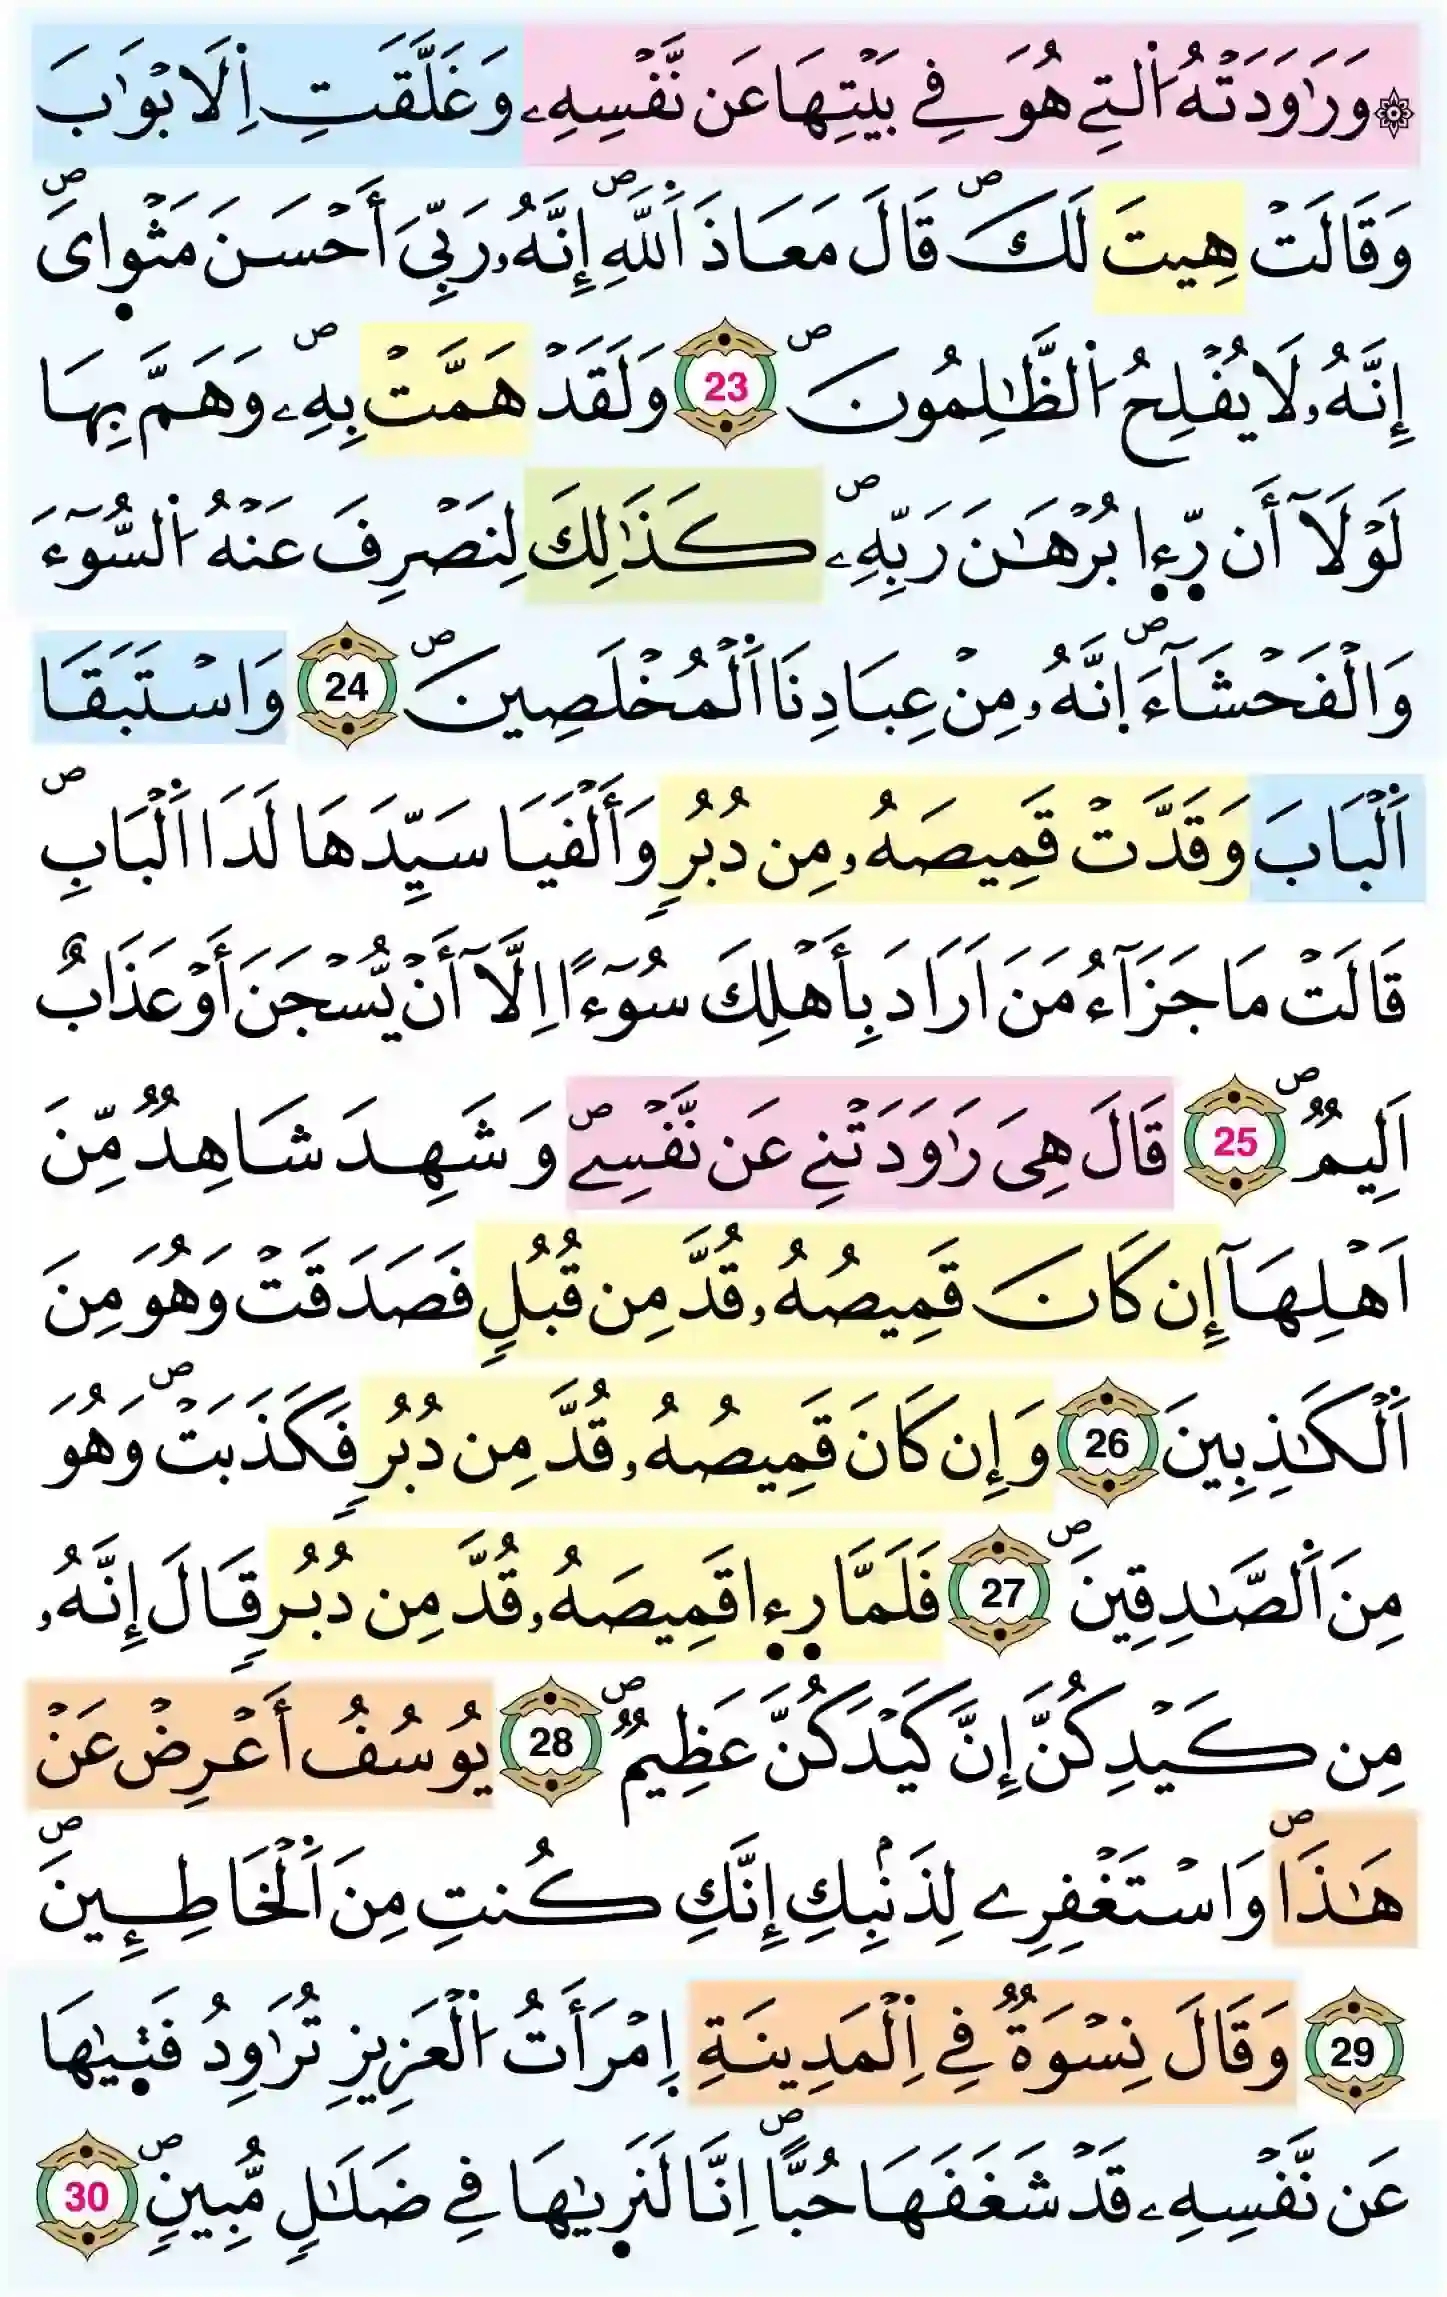 ۞ وَرَٰوَدَتْهُ اُ۬لتِے هُوَ فِے بَيْتِهَا عَن نَّفْسِهِۦ وَغَلَّقَتِ اِ۬لَابْوَٰبَ
وَقَالَتْ هِيتَ لَكَۖ قَالَ مَعَاذَ اَ۬للَّهِۖ إِنَّهُۥ رَبِّيَ أَحْسَنَ مَثْو۪ايَۖ
إِنَّهُۥ لَا يُفْلِحُ اُ۬لظَّٰلِمُونَۖ 23 وَلَقَدْ هَمَّتْ بِهِۦۖ وَهَمَّ بِهَا
لَوْلَآ أَن رّ۪ء۪ا بُرْهَٰنَ رَبِّهِۦۖ كَذَٰلِكَ لِنَصْرِفَ عَنْهُ اُ۬لسُّوٓءَ
وَالْفَحْشَآءَۖ اِنَّهُۥ مِنْ عِبَادِنَا اَ۬لْمُخْلَصِينَۖ 24 وَاسْتَبَقَا
اَ۬لْبَابَ وَقَدَّتْ قَمِيصَهُۥ مِن دُبُرٖ وَأَلْفَيَا سَيِّدَهَا لَدَا اَ۬لْبَابِۖ
قَالَتْ مَا جَزَآءُ مَنَ اَرَادَ بِأَهْلِكَ سُوٓءاً اِلَّآ أَنْ يُّسْجَنَ أَوْ عَذَابٌ
اَلِيمٞۖ 25 قَالَ هِيَ رَٰوَدَتْنِے عَن نَّفْسِےۖ وَشَهِدَ شَاهِدٞ مِّنَ
اَهْلِهَآ إِن كَانَ قَمِيصُهُۥ قُدَّ مِن قُبُلٖ فَصَدَقَتْ وَهُوَ مِنَ
اَ۬لْكَٰذِبِينَ 26 وَإِن كَانَ قَمِيصُهُۥ قُدَّ مِن دُبُرٖ فَكَذَبَتْۖ وَهُوَ
مِنَ اَ۬لصَّٰدِقِينَۖ 27 فَلَمَّا ر۪ء۪ا قَمِيصَهُۥ قُدَّ مِن دُبُرٖ قَالَ إِنَّهُۥ
مِن كَيْدِكُنَّ إِنَّ كَيْدَكُنَّ عَظِيمٞۖ 28 يُوسُفُ أَعْرِضْ عَنْ
هَٰذَاۖ وَاسْتَغْفِرِے لِذَنۢبِكِ إِنَّكِ كُنتِ مِنَ اَ۬لْخَاطِـِٕينَۖ
29 وَقَالَ نِسْوَةٞ فِے اِ۬لْمَدِينَةِ اِمْرَأَتُ اُ۬لْعَزِيزِ تُرَٰوِدُ فَت۪يٰهَا
عَن نَّفْسِهِۦ قَدْ شَغَفَهَا حُبّاًۖ اِنَّا لَنَر۪يٰهَا فِے ضَلَٰلٖ مُّبِينٖۖ 30